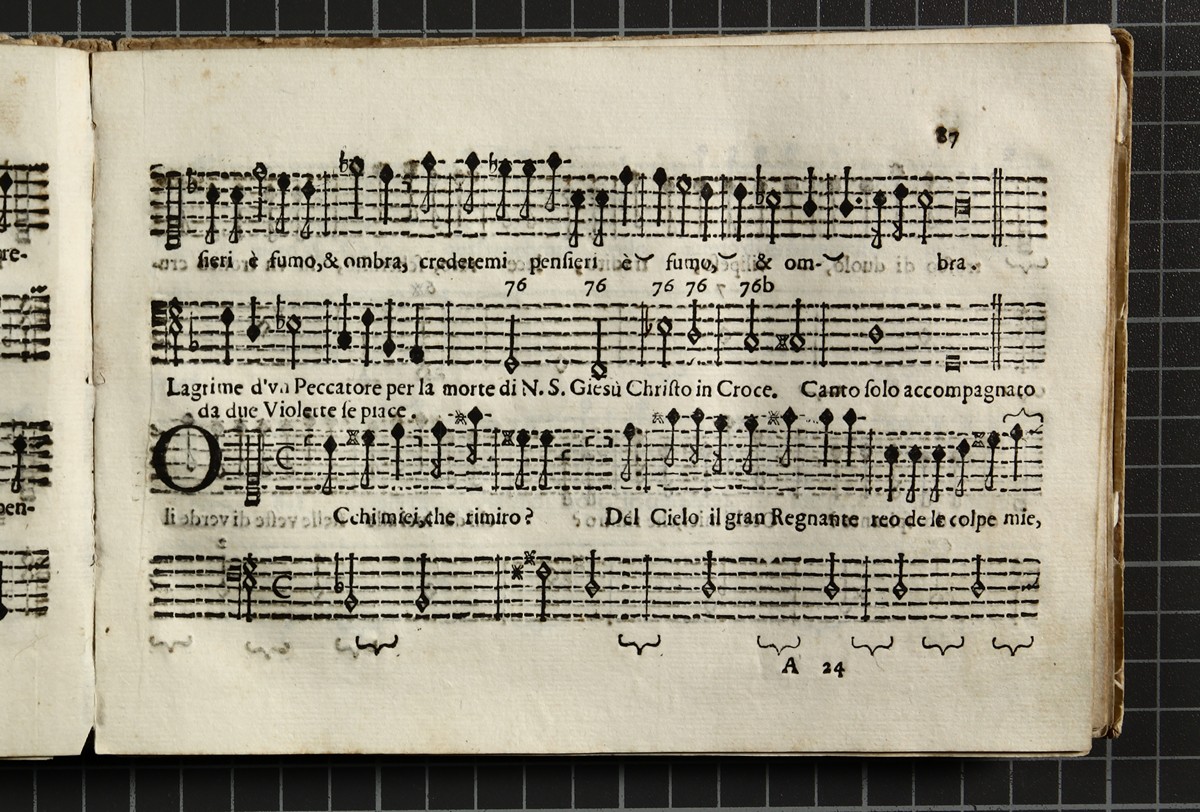 87
ſieri è fumo,& ombra, credetemi penſieri è fumo, & om- bra.
76 76 76 76 7 76b
Lagrime d'vn Peccatore per la morte di N. S. Gieſu Chriſto in Croce. Canto ſolo accompagnato
da due Violette ſe piace.
O
Cchi miei, che rimiro? Del Cielo il gran Regnante reo de le colpe mie,
A 24
re-
pen-